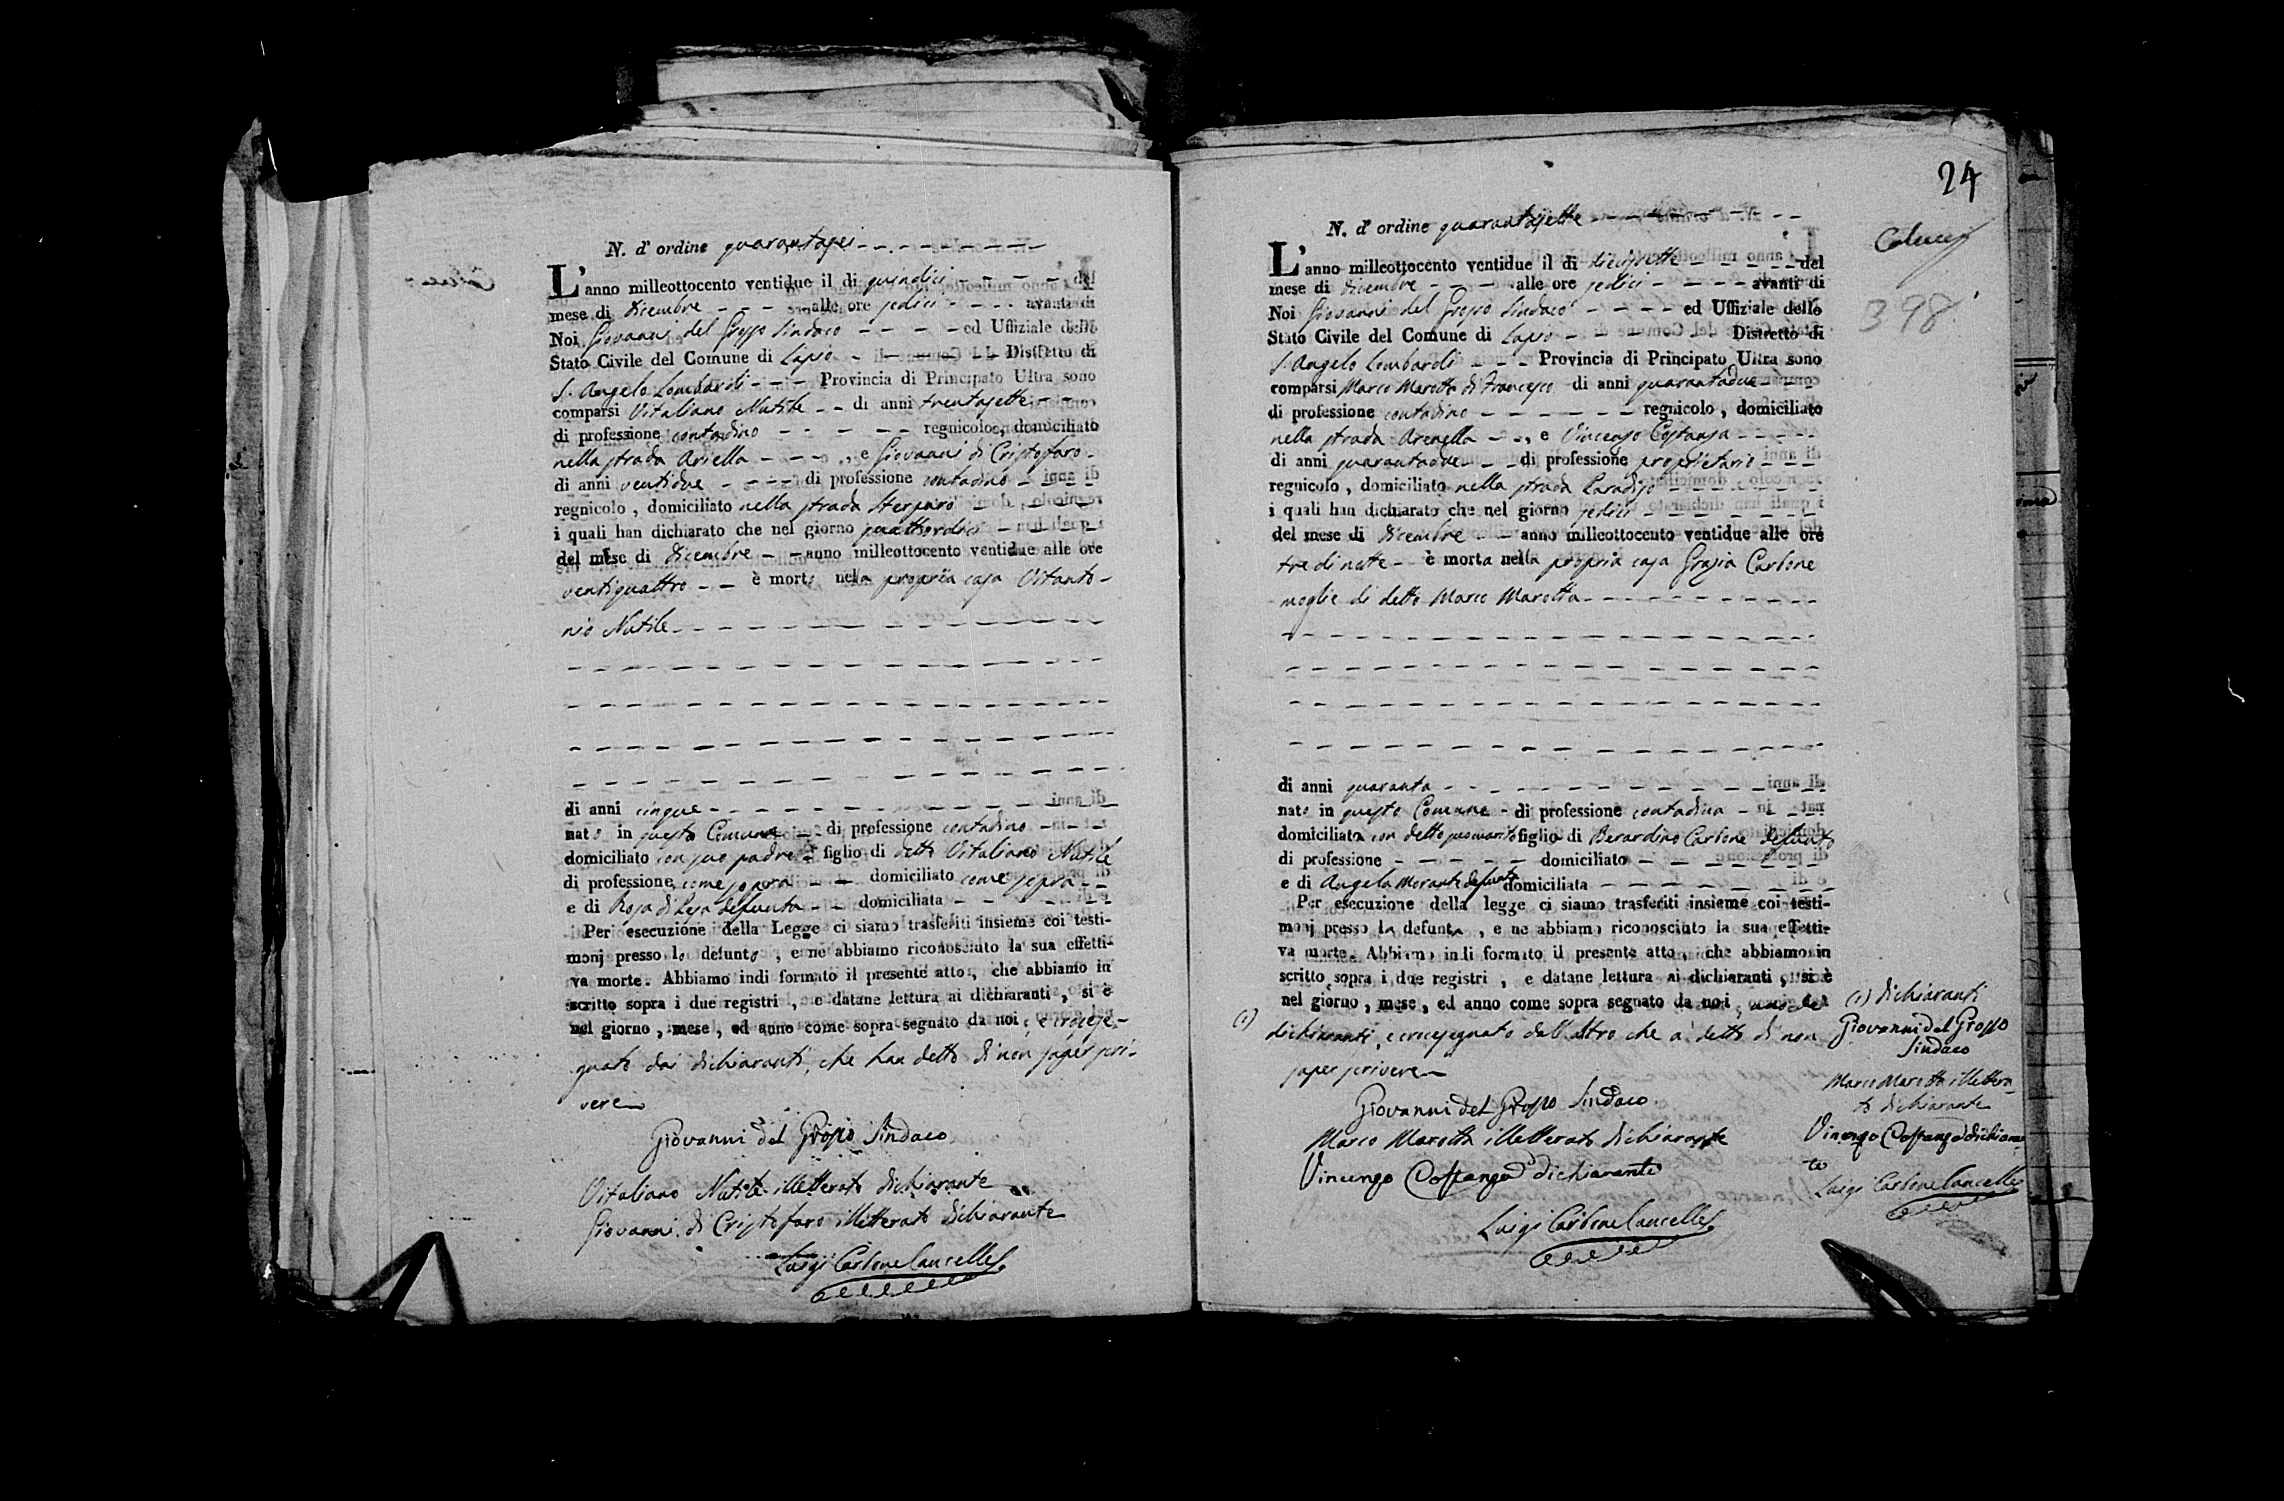 N. d' ordine quarantasei
L'anno milleottocento ventidue il di quindici del
mese di dicembre alle ore sedici avanti di
Noi Giovanni del Grosso Sindaco ed Uffiziale dello
Stato Civile del Comune di Lapio Distretto di
S. Angelo Lombardi Provincia di Principato Ultra sono
comparsi Vitaliano Nutile di anni trentasette
di professione contadino regnicolo, domiciliato
nella strada Ariella, e Giovanni di Cristofaro
di anni ventidue di professione contadino
regnicolo, domiciliato nella strada Sterparo
i quali han dichiarato che nel giorno quattordici
del mese di dicembre anno milleottocento ventidue alle ore
ventiquattro è morto nella propria casa Vitanto-
nio Nutile
di anni cinque
nato in questo Comune di professione contadino
domiciliato con suo padre figlio di detto Vitaliano Nutile
di professione come sopra domiciliato come sopra
e di Rosa di defunta domiciliata
Per esecuzione della Legge ci siamo trasferiti insieme coi testi-
monj presso lo defunto, e ne abbiamo riconosciuto la sua effetti-
va morte. Abbiamo indi formato il presente atto, che abbiamo in
scritto sopra i due registri, e datane lettura ai dichiaranti, si è
nel giorno, mese, ed anno come sopra segnato da noi, e crocese-
gnato dai dichiaranti, che han detto di non saper scri-
vere
Giovanni del Grosso Sindaco
Vitaliano Nutile illetterato dichiarante
Giovanni di Cristofaro illetterato dichiarante
Luigi Carbone Cancelle
24
N. d' ordine quarantasette
Colucci
L'anno milleottocento ventidue il di diecisette del
mese di dicembre alle ore sedici avanti di
398
Noi Giovanni del Grosso Sindaco ed Uffiziale dello
Stato Civile del Comune di Lapio Distretto di
S. Angelo Lombardi Provincia di Principato Ultra sono
comparsi Marco Marotta di Francesco di anni quarantadue
di professione contadino regnicolo, domiciliato
nella strada Arenella, e Vincenzo Costanza
di anni quarantadue di professione proprietario
regnicolo, domiciliato nella strada Paradiso
i quali han dichiarato che nel giorno sedici
del mese di dicembre anno milleottocento ventidue alle ore
tre di notte è morta nella propria casa Grazia Carbone
moglie di detto Marco Marotta
di anni quaranta
nata in questo Comune di professione contadina
domiciliata con detto suo marito figlio di Berardino Carbone defunto
di professione domiciliato
e di Angela Morante defunta domiciliata
Per esecuzione della legge ci siamo trasferiti insieme coi testi-
monj presso la defunta, e ne abbiamo riconosciuto la sua effetti-
va morte. Abbiamo indi formato il presente atto, che abbiamo in
scritto sopra i due registri, e datane lettura ai dichiaranti, si è
nel giorno, mese, ed anno come sopra segnato da noi, uno de
(1) dichiaranti, e crocesegnato dall'altro che a detto di non
saper scrivere
Giovanni del Grosso Sindaco
Marco Marotta illetterato dichiarante
Vincenzo Costanza dichiarante
Luigi Carbone Cancelle
(1) dichiaranti
Giovanni del Grosso
Sindaco
Marco Marotta illettera-
to dichiarante
Vincenzo Costanza dichiaran-
te
Luigi Carbone Cancelle